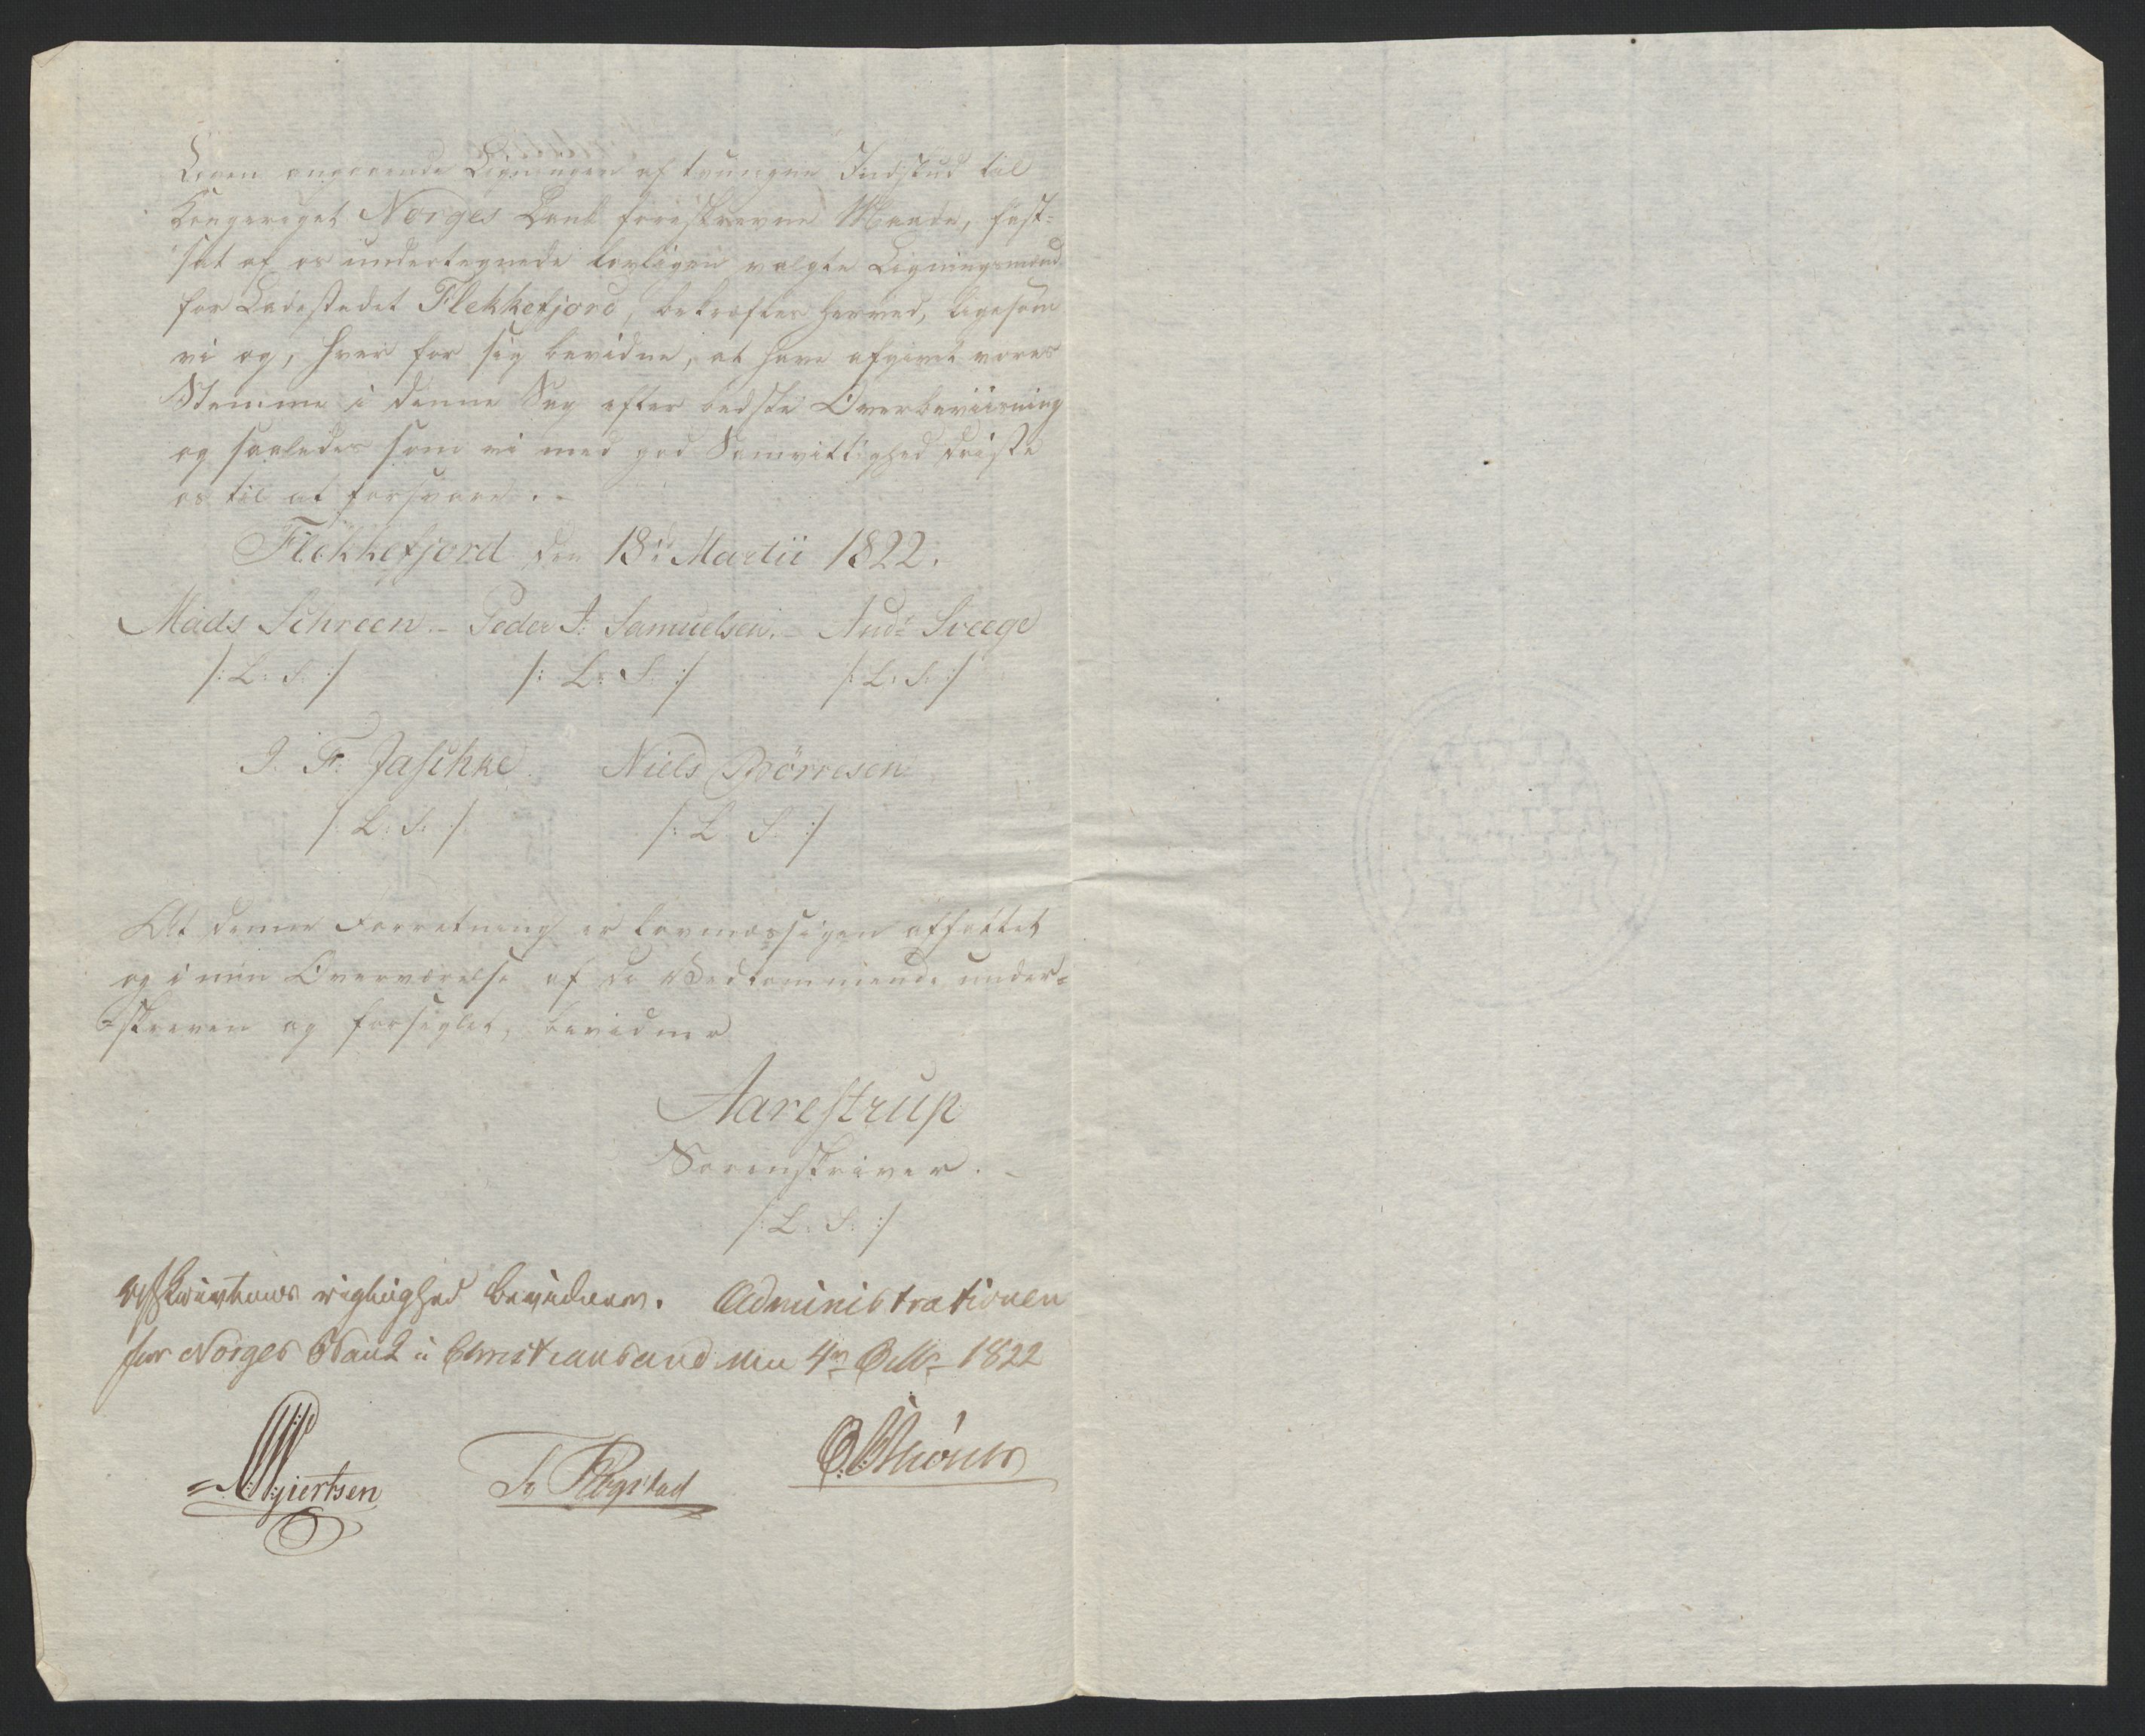 Loven angaaende Ligningen af tvungne Indskud til
Kongeriget Norges Bank foreskrevne Maade, fast-
sat af os undertegnede lovligen valgte Ligningsmænd
for Ladestedet Flekkefjord, bekræftes herved, ligesom
vi og, hver for sig bevidne, at have afgivet vores
Stemme i denne Sag efter bedste Overbeviisning
og saaledes som vi med god Samvittighed driste
os til at forsvare. -
Flekkefjord den 13de Martii 1822.
Mads Schreen. - Peder J: Samuelsen. - And: Sveege
/: L: S: :/ /: L: S: :/ /: L: S: :/
J. F. Jaschke Niels Børresen
/: L: S: :/ /: L: S: :/
At denne Forretning er lovmæssigen affattet
og i min Overværelse af de Vedkommende under-
-skreven og forseglet, bevidner
Aarestrup
Sorenskriver. -
/: L: S: :/
Afskrivtens rigtighed bevidner. Administrationen
for Norges Bank i Christiansand den 4de 1822
Gjertsen